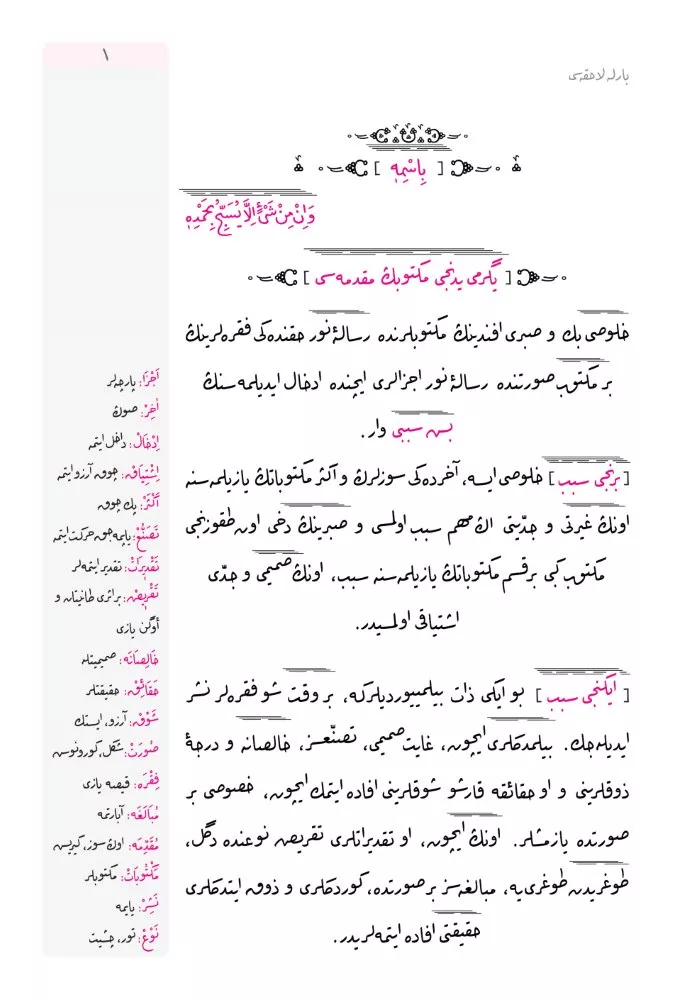 ١
بارله لاحقه‌سی
[ بِاسْمِهِ ]
وَاِنْ مِنْ شَیْءٍ اِلَّا يُسَبِّحُ بِحَمْدِهِ
[ يگرمی يدنجی مكتوبڭ مقدمه‌سی ]
خلوصی بك و صبری افندينڭ مكتوبلرنده رسالهٔ نور حقنده‌كی فقره‌لرينڭ
بر مكتوب صورتنده رسالهٔ نور اجزالری ايچنده ادخال ايديلمه‌سنڭ
بش سببی وار.
[ برنجی سبب ] خلوصی ايسه، آخرده‌كی سوزلرڭ و اكثر مكتوباتڭ يازيلمه‌سنه
اونڭ غيرتی و جدّيتی اڭ مهم سبب اولمسی و صبرينڭ دخی اون طقوزنجی
مكتوب كبی بر قسم مكتوباتڭ يازيلمه‌سنه سبب، اونڭ صميمی و جدّی
اشتياقی اولمسيدر.
[ ايكنجی سبب ] بو ايكی ذات بيلميورديلركه، بر وقت شو فقره‌لر نشر
ايديله‌جك. بيلمدكلری ايچون، غايت صميمی، تصنّعسز، خالصانه و درجهٔ
ذوقلرينی و او حقائقه قارشو شوقلرينی افاده ايتمك ايچون، خصوصی بر
صورتده يازمشلر. اونڭ ايچون، او تقديراتلری تقريض نوعنده دگل،
طوغريدن طوغری‌يه، مبالغه‌سز بر صورتده، كوردكلری و ذوق ايتدكلری
حقيقتی افاده ايتمه‌لريدر.
اَجْزَا: پارچه‌لر
اٰخِرْ: صوڭ
اِدْخَالْ: داخل ايتمه
اِشْتِيَاقْ: چوق آرزو ايتمه
اَكْثَرْ: پك چوق
تَصَنُّعْ: ياپمه‌جق حركت ايتمه
تَقْدِيرَاتْ: تقدير ايتمه‌لر
تَقْرِيضْ: بر اثری طانيتان و
اوگن يازی
خَالِصَانَه: صميميتله
حَقَائِقْ: حقيقتلر
شَوْقْ: آرزو، ايستك
صُورَتْ: شكل، كورونوش
فِقْرَه: قيصه يازی
مُبَالَغَه: آبارتمه
مُقَدِّمَه: اوڭ سوز، گيريش
مَكْتُوبَاتْ: مكتوبلر
نَشِرْ: يايمه
نَوْعْ: تور، چشيت